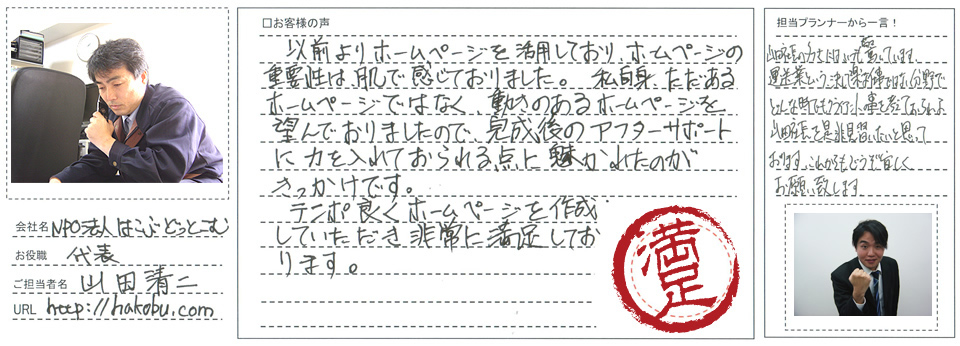 会社名 NPO法人はこぶ・どっとこむ
お役職 代表
ご担当者名 山田清二
URL http://hakobu.com
□お客様の声
以前よりホームページを活用しており、ホームページの
重要性は肌で感じておりました。私自身、ただある
ホームページではなく、動きのあるホームページを
望んでおりましたので、完成後のアフターサポート
に力を入れておられる点に魅かれたのが
きっかけです。
テンポ良くホームページを作成
していただき非常に満足してお
ります。
満足
担当プランナーから一言！
山田代表の
驚いています。
運送業という
分野で
どんな時でも
山田代表を是非見習いたいと思って
おります。これからもどうぞ宜しく
お願い致します